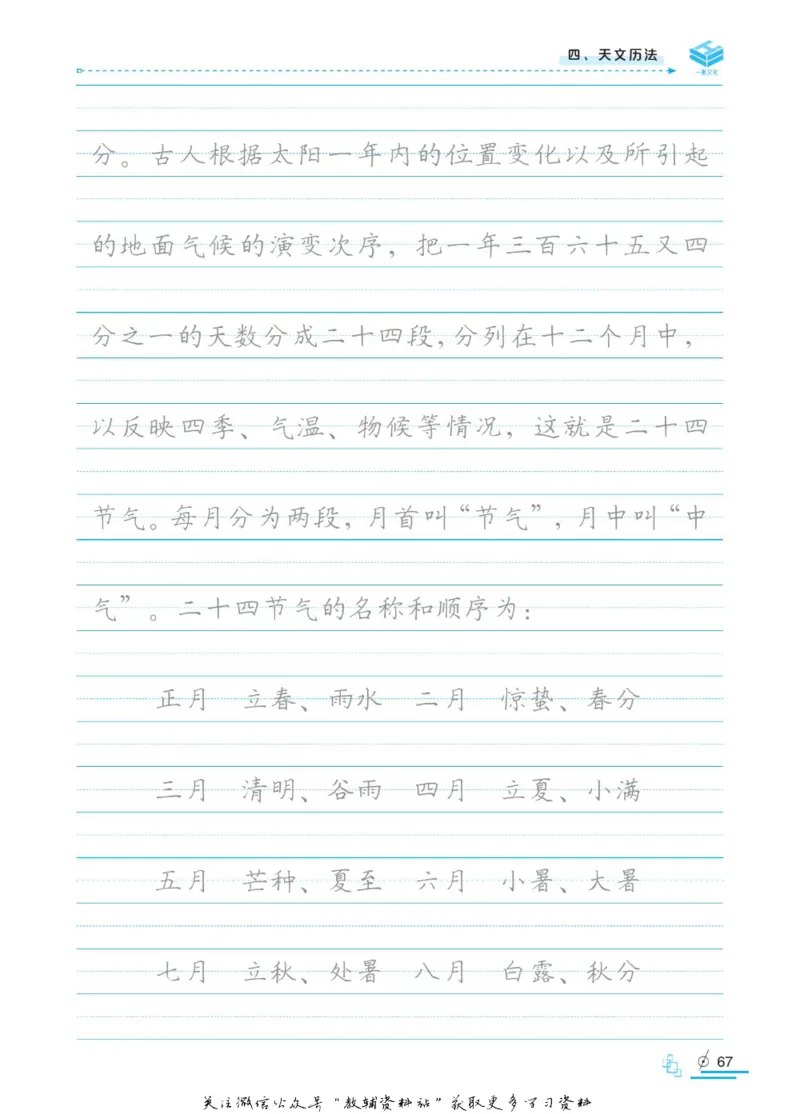 四、天文历法
一麦文化
分。古人根据太阳一年内的位置变化以及所引起
的地面气候的演变次序，把一年三百六十五又四
分之一的天数分成二十四段，分列在十二个月中，
以反映四季、气温、物候等情况，这就是二十四
节气。每月分为两段，月首叫“节气”，月中叫“中
气”。二十四节气的名称和顺序为：
正月 立春、雨水 二月 惊蛰、春分
三月 清明、谷雨 四月 立夏、小满
五月 芒种、夏至 六月 小暑、大暑
七月 立秋、处暑 八月 白露、秋分
67
关注微信公众号“教辅资料站”获取更多学习资料